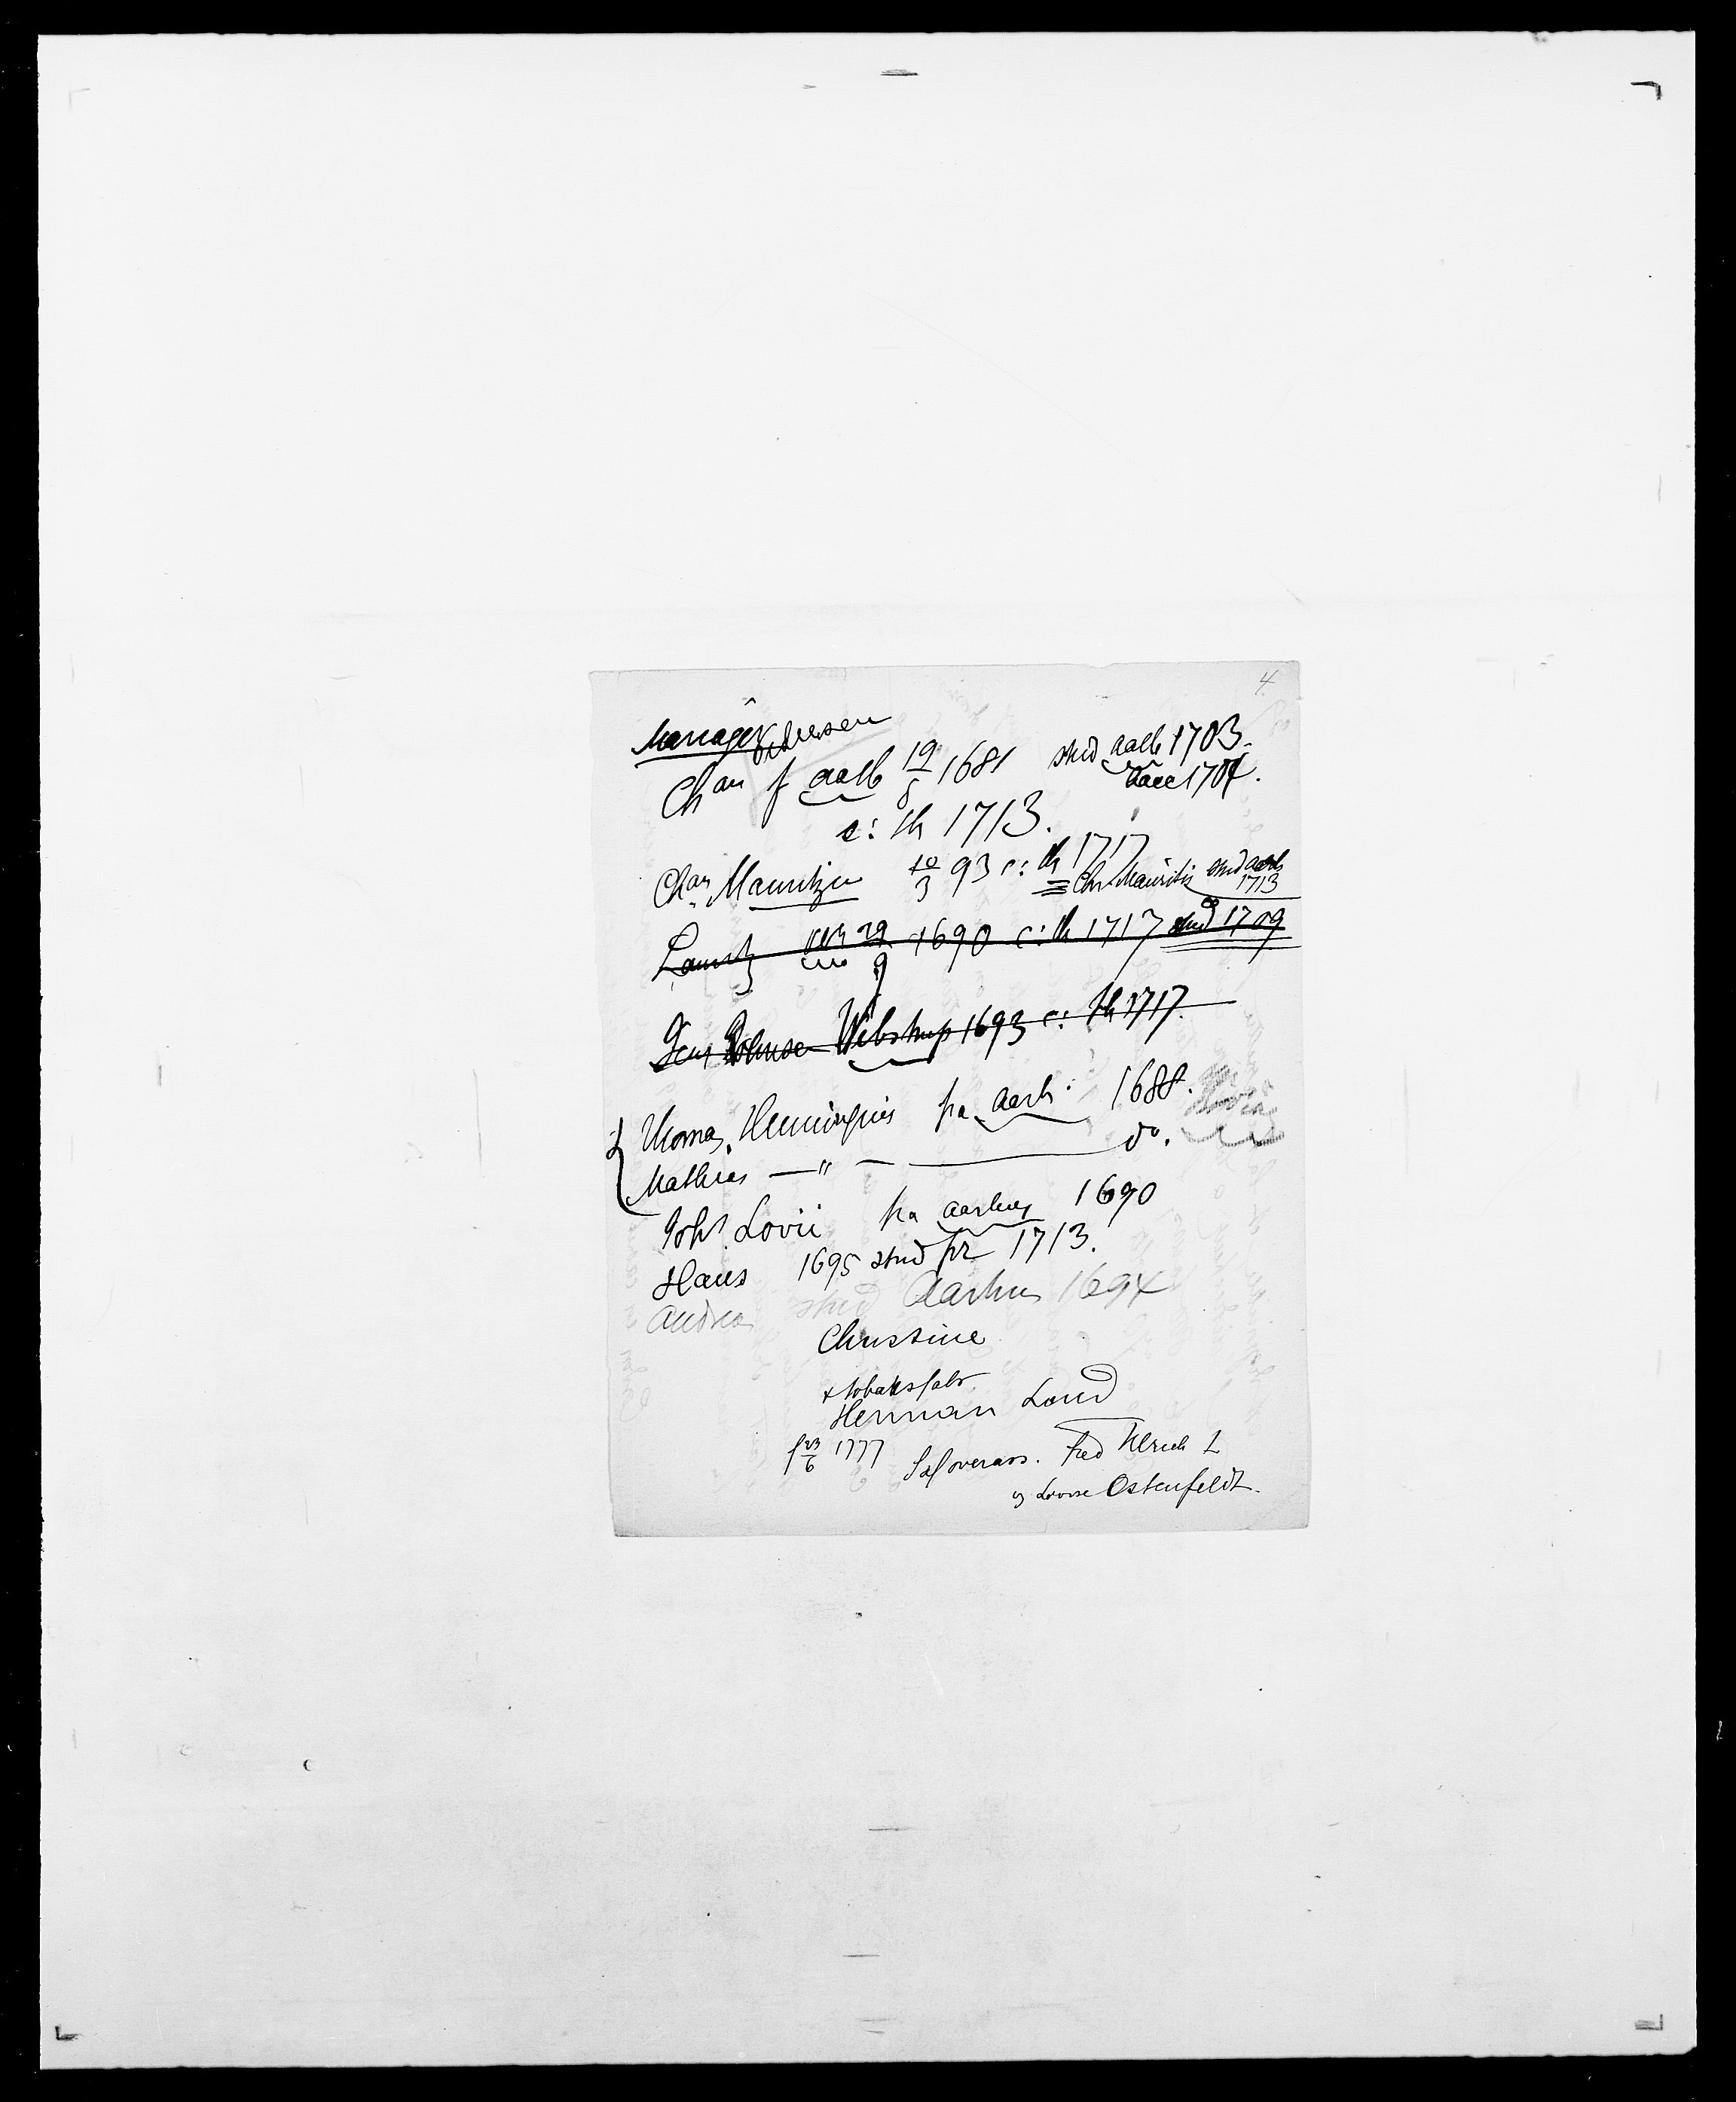 4
Mariager
Chan f aalb 19/8 1681 stud aalb 1703.
bacc 1704.
c: th 1713.
Chan Mauritzen 10/3 93 c: th 1717
= Chr. Mauritii stud aarh 1713
Lauritz 29/9 1690 c: th 1717 stud 1709
Jens Wibstrup 1693 c: th 1717.
Thomas Hemingius fra Aarh: 1688.
Mathias — " — do.
Joh. Lovii fra aarhus 1690
Hans 1695 stud fr 1713.
Andreas stud Aarhus 1694
Christine
Herman Lund
f 23/6 1777 Fred Ulrich L
og Ostenfeldt.